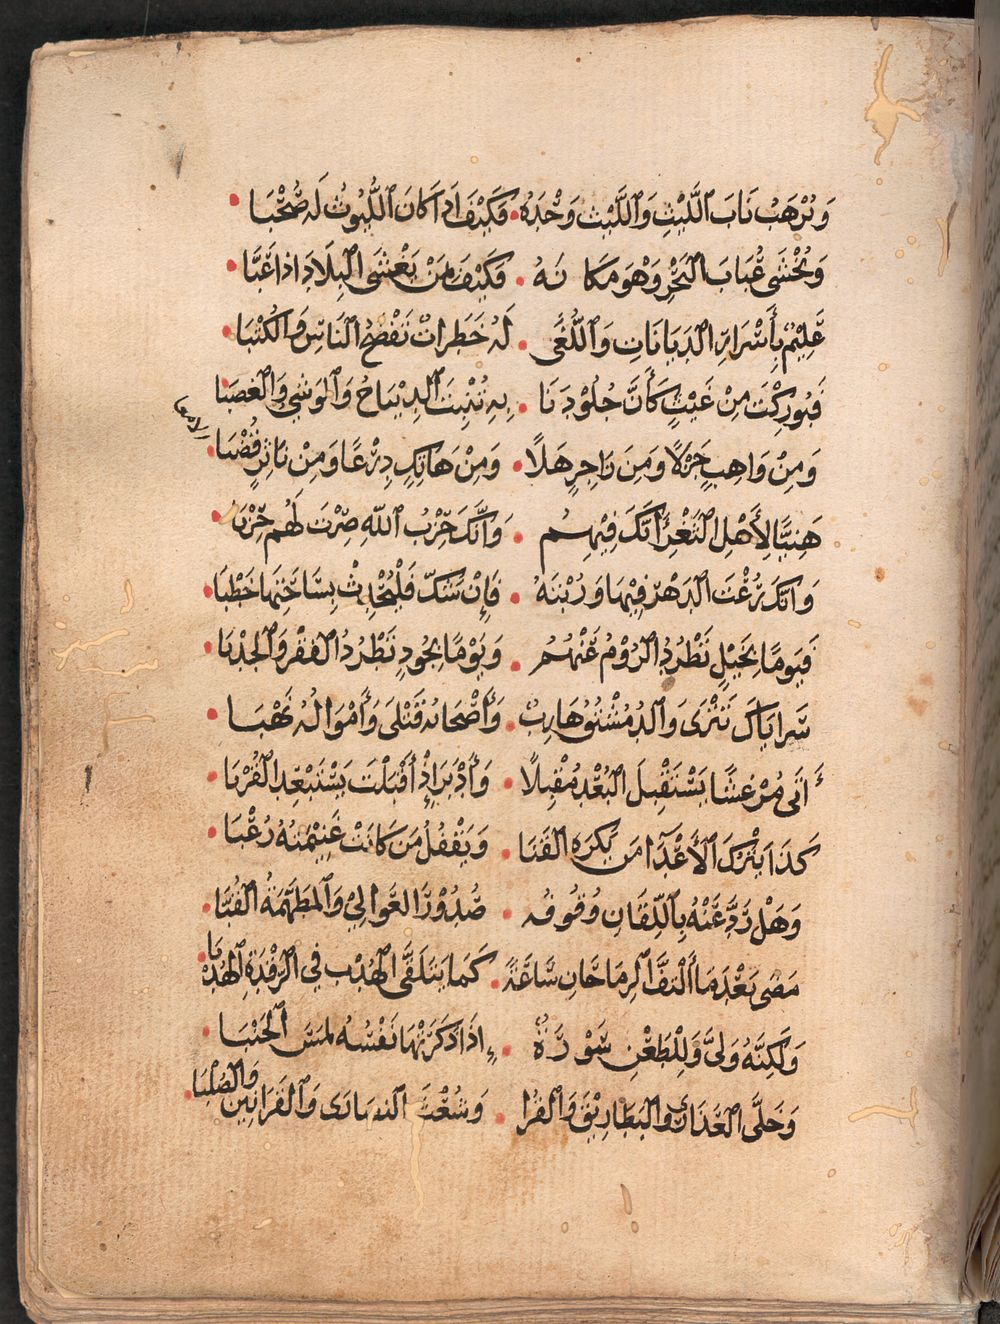 وَيُرْهَبُ نَابُ اللَّيْثِ وَاللَّيْثُ وَحْدَهُ • فَكَيْفَ اِذَا كَانَ اللُّيُوثُ لَهُ صُحْبَا •
وَيُخْشَى عُبَابُ الْبَحْرِ وَهْوَ مَكَانَهُ • فَكَيْفَ بِمَنْ يَغْشَى الْبِلَادَ اِذَا عَبَّا •
عَلِيْمٌ بِأَسْرَارِ الدِّيَانَاتِ وَاللُّغَى • لَهُ خَطَرَاتٌ تَفْضَحُ النَّاسَ وَالْكُتْبَا •
فَبُورِكْتَ مِنْ غَيْثٍ كَأَنَّ جُلُوْدَنَا • بِهِ تُنْبِتُ الدِّيْبَاجَ وَالْوَشْيَ وَالْعَصْبَا
وَمِنْ وَاهِبٍ جَزْلًا وَمِنْ زَاجِرٍ هَلًا • وَمِنْ هَاتِكٍ دِرْعًا وَمِنْ نَاثِرٍ قُصْبَا •
الامعا
هَنِيْئًا لِأَهْلِ الثَّغْرِ أَنَّكَ فِيْهِمُ • وَاَنَّكَ حِزْبُ اللهِ صِرْتَ لَهُمْ حِزْبَا •
وَاَنَّكَ رُعْتَ الدَّهْرَ فِيْهَا وَرَيْبَهُ • فَإِنْ شَكَّ فَلْيُحْدِثْ بِسَاحَتِهَا خَطْبَا •
فَيَوْمًا بِخَيْلٍ تَطْرُدُ الرُّوْمَ عَنْهُمُ • وَيَوْمًا بِجُودٍ تَطْرُدُ الْفَقْرَ وَالْجَدْبَا •
سَرَايَاكَ تَتْرَى وَالدُّمُسْتُقُ هَارِبٌ • وَأَصْحَابُهُ قَتْلَى وَأَمْوَالُهُ نَهْبَا •
أَتَى مَرْعَشًا يَسْتَقْبِلُ الْبُعْدَ مُقْبِلًا • وَأَدْبَرَ إِذْ أَقْبَلْتَ يَسْتَبْعِدُ الْقُرْبَا •
كَذَا يَتْرُكُ الْأَعْدَاءَ مَنْ يَكْرَهُ الْقَنَا • وَيَقْفُلُ مَنْ كَانَتْ غَنِيْمَتُهُ رُعْبَا •
وَهَلْ رَدَّ عَنْهُ بِاللُّقَانِ وُقُوفُهُ • صُدُوْرَ الْعَوَالِيْ وَالْمُطَهَّمَةَ الْقُبَّا •
مَضَى بَعْدَمَا أَلْتَفَّ الرِّمَاحَانِ سَاعَةً • كَمَا يَتَلَقَّى الْهُدْبُ فِي الرَّقْدَةِ الْهُدْبَا •
وَلَكِنَّهُ وَلَّى وَلِلطَّعْنِ سَوْرَةٌ • إِذَا ذَكَرَتْهَا نَفْسُهُ لَمَسَ الْجَنْبَا •
وَخَلَّى الْعَذَارَى وَالْبَطَارِيْقَ وَالْقُرَا • وَشُعْثَ النَّصَارَى وَالْقَرَابِيْنَ وَالصُّلْبَا •